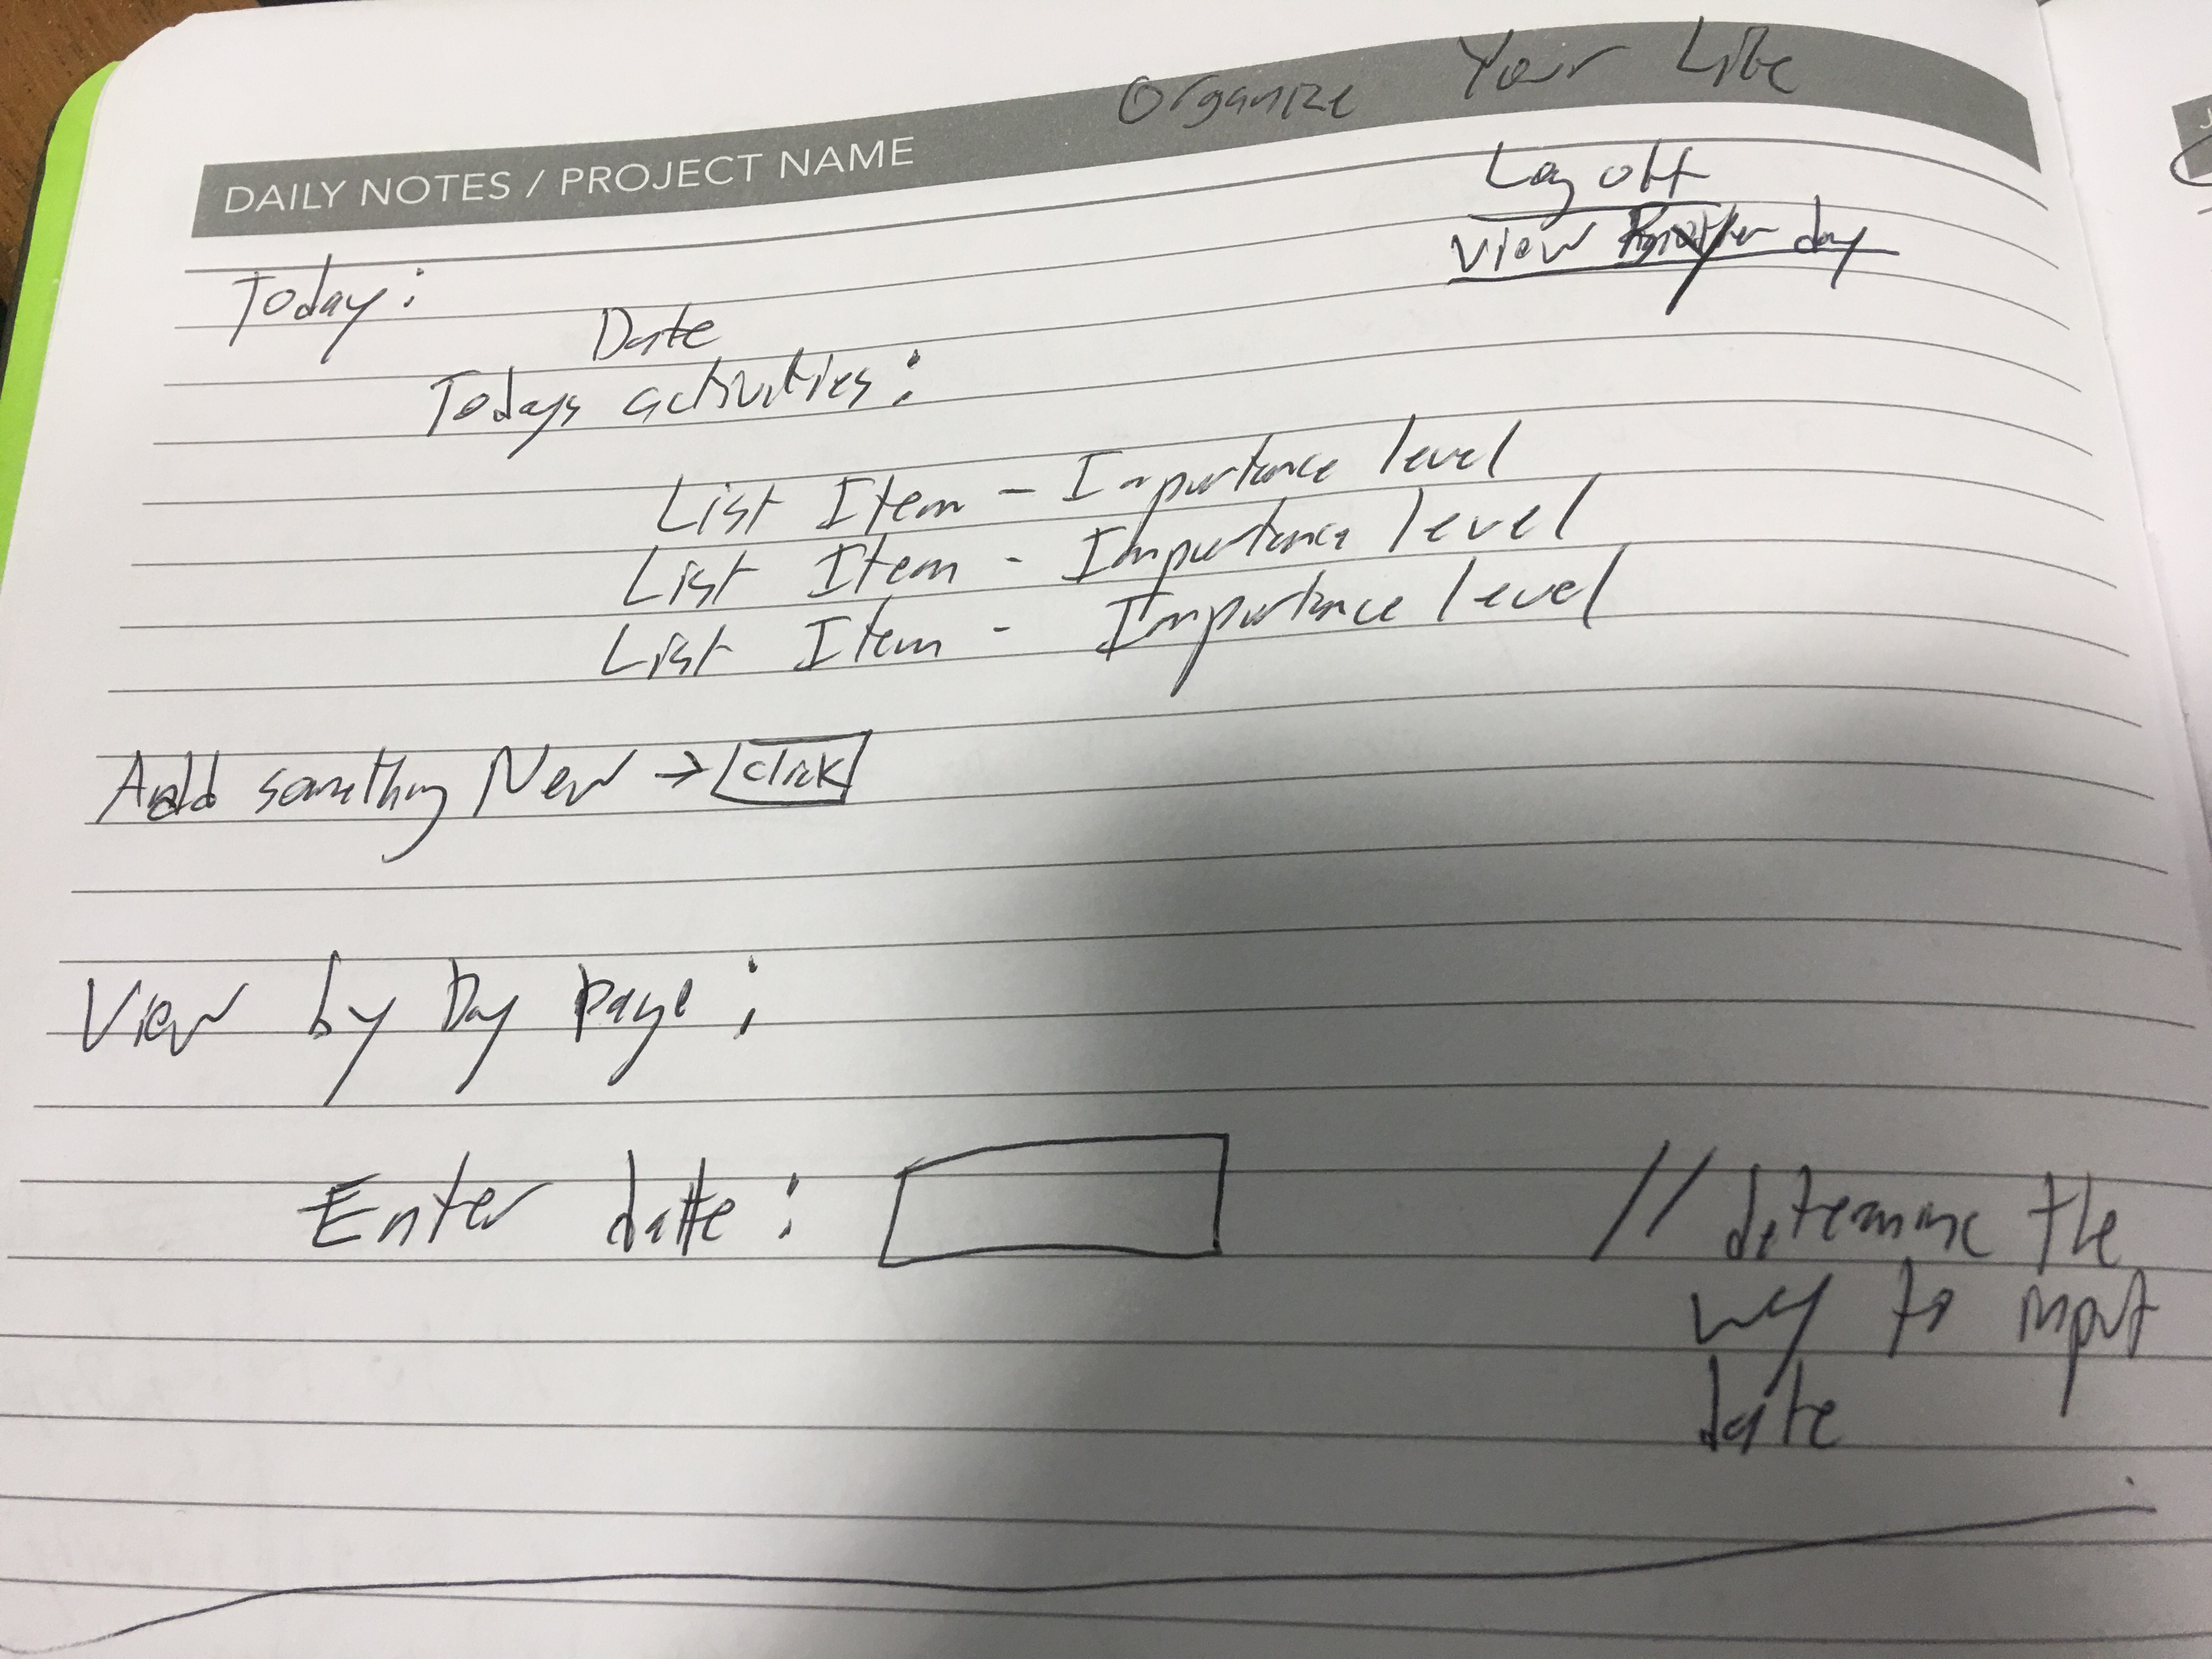 Organize Your Life
DAILY NOTES / PROJECT NAME
Log off
View day
Today:
Date
Todays activities:
List Item - Importance level
List Item - Importance level
List Item - Importance level
Add something New → click
View by Day page:
Enter date:
// determine the
way to input
date